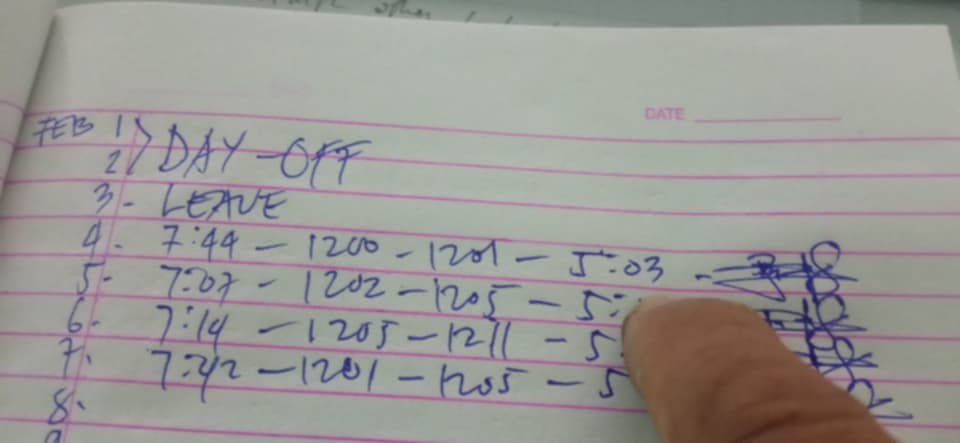 DATE
FEB 1 DAY-OFF
2
3- LEAVE
4- 7:44 - 1200 - 1201 - 5:03 -
5- 7:07 - 1202 - 1205 - 5:
6- 7:14 - 1205 - 1211 - 5
7. 7:42 - 1201 - 1205 - 5
8.